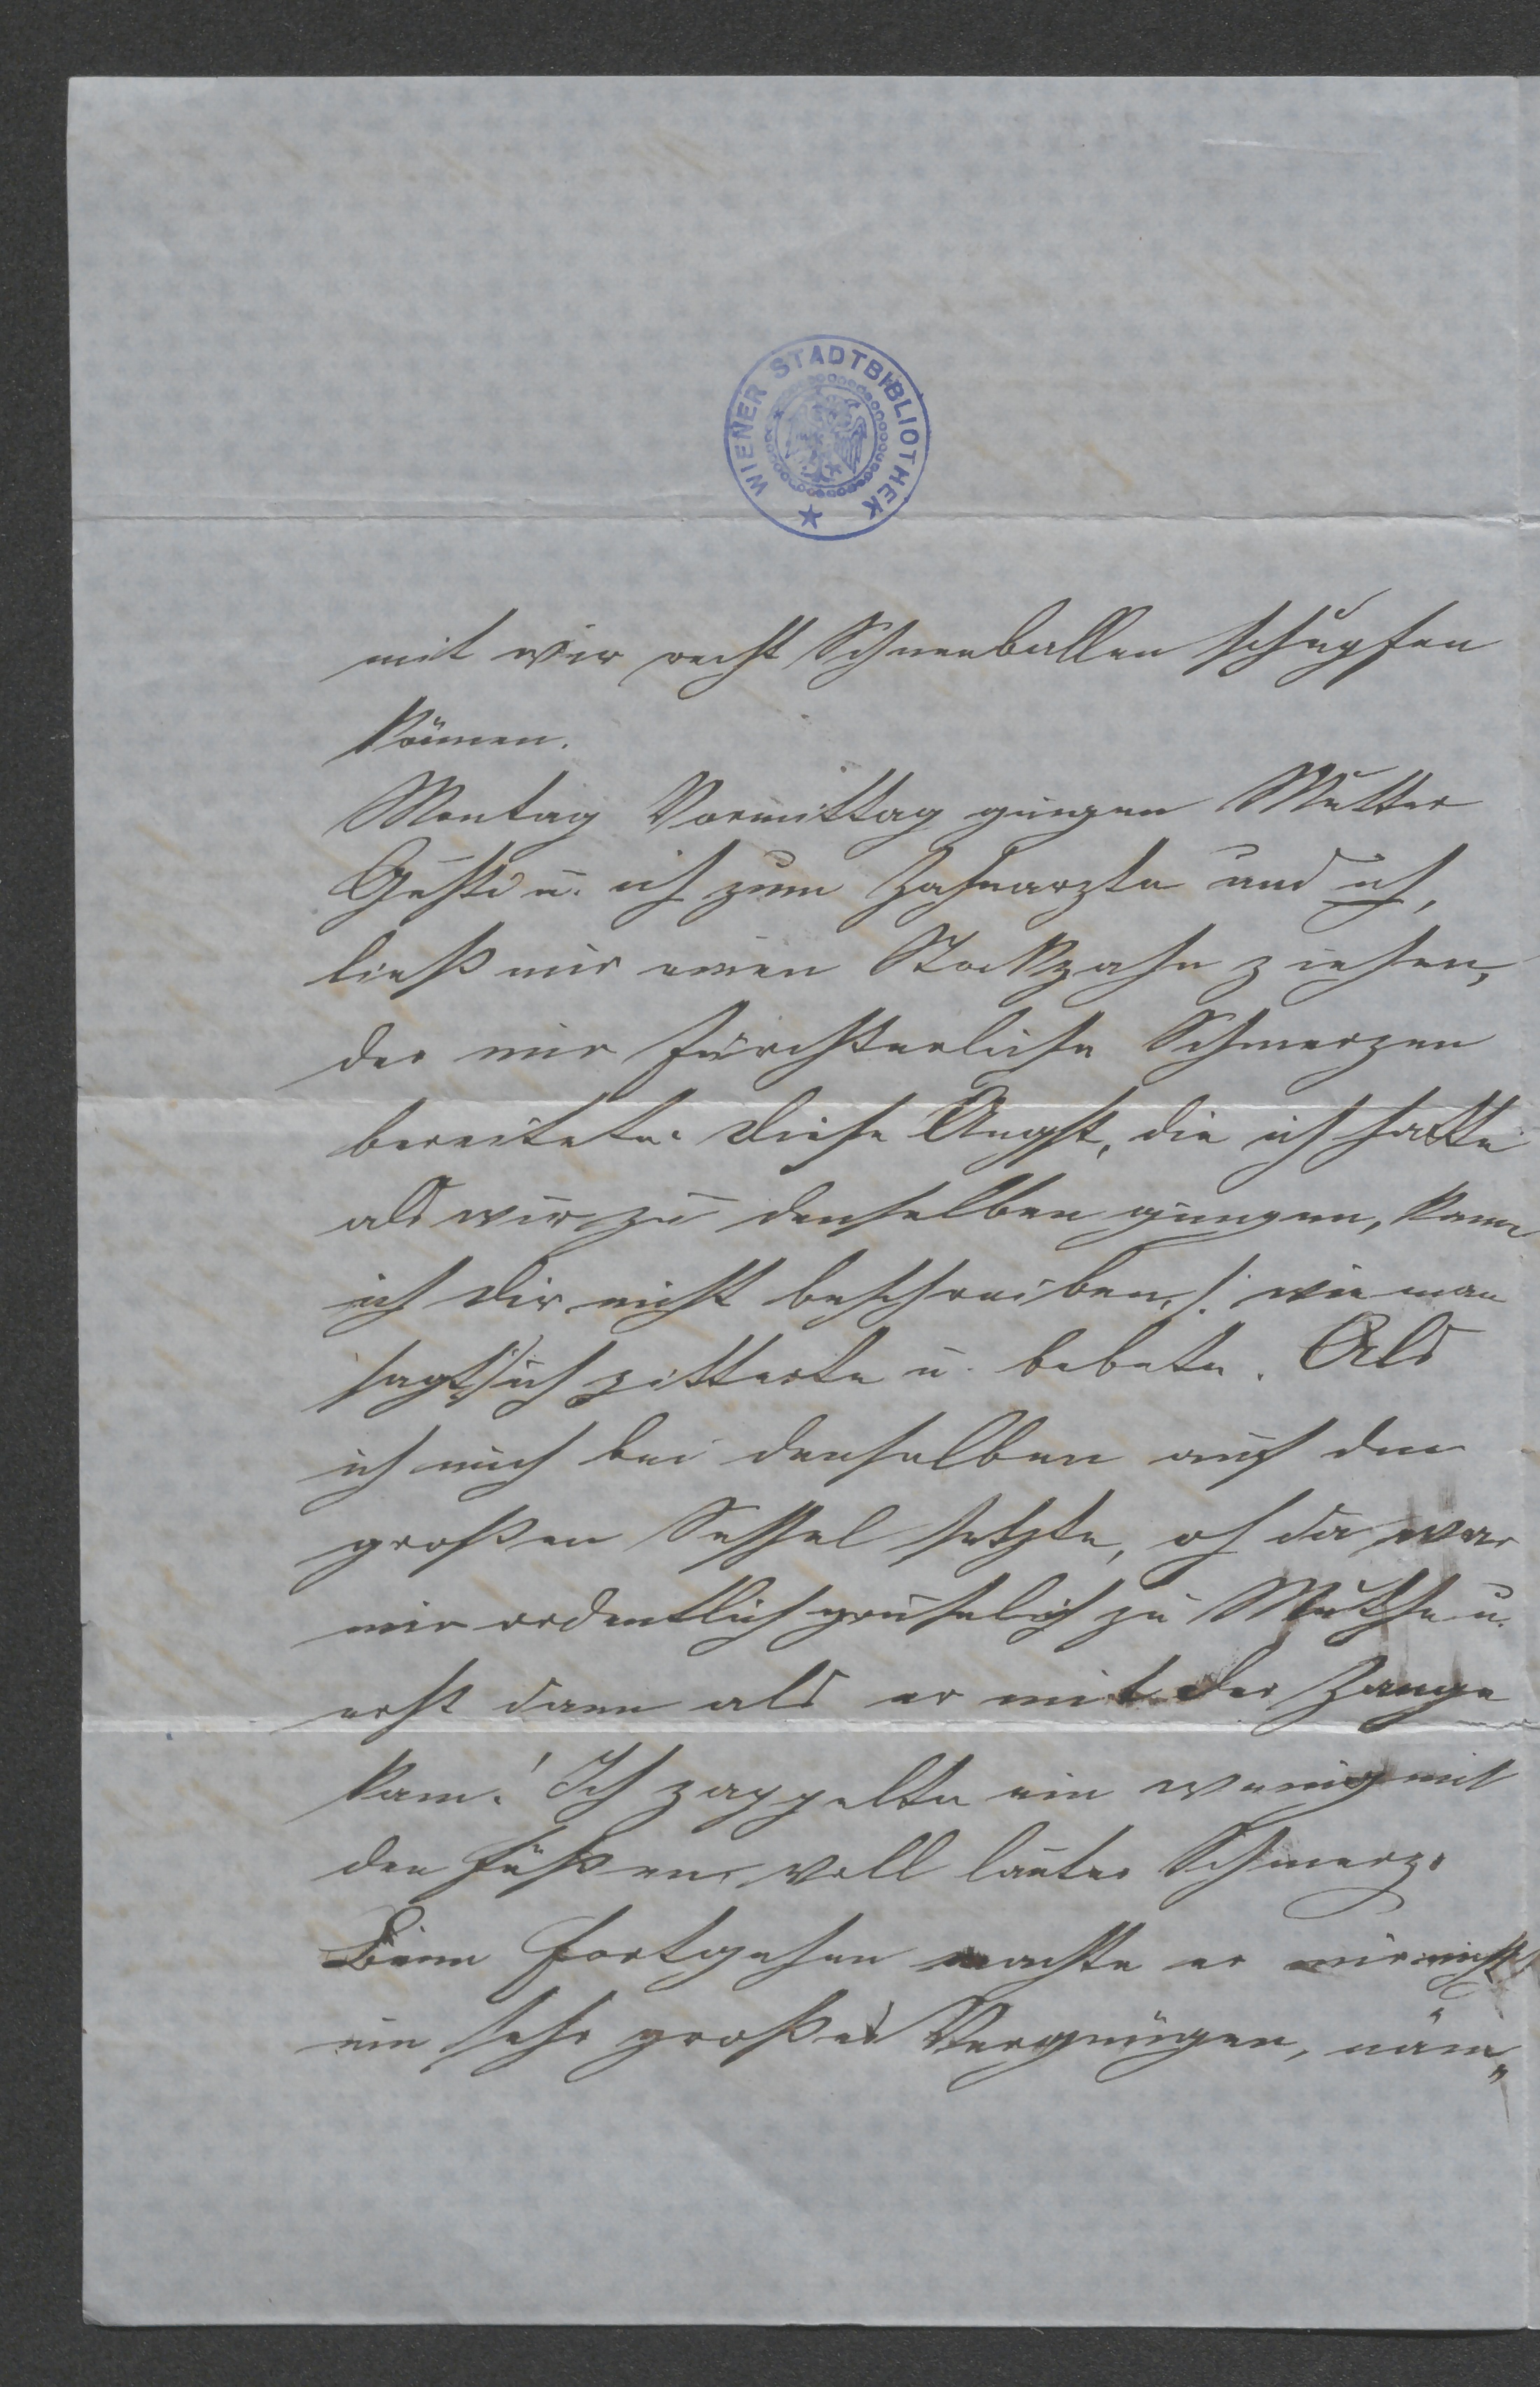 WIENER STADTBIBLIOTHEK
mit wir recht Schneeballen schupfen
können.
Montag Vormittag gingen Mutter
Gusti u. ich zum Zahnarzte und ich,
ließ mir einen Stockzahn ziehen,
der mir fürchterliche Schmerzen
bereitete. Diese Angst, die ich hatte
als wir zu denselben gingen, kann
ich Dir nicht beschreiben, /: wie man
sagt :/ ich zitterte u. bebete. Als
ich mich bei denselben auf den
großen Sessel setzte, oh da war
mir ordentlich gruselich zu Muthe u.
erst dann als er mit der Zange
kam! Ich zappelte ein wenig mit
den Füßen, voll lauter Schmerz.
Beim Fortgehen machte er mir nicht
ein sehr großes Vergnügen, näm„